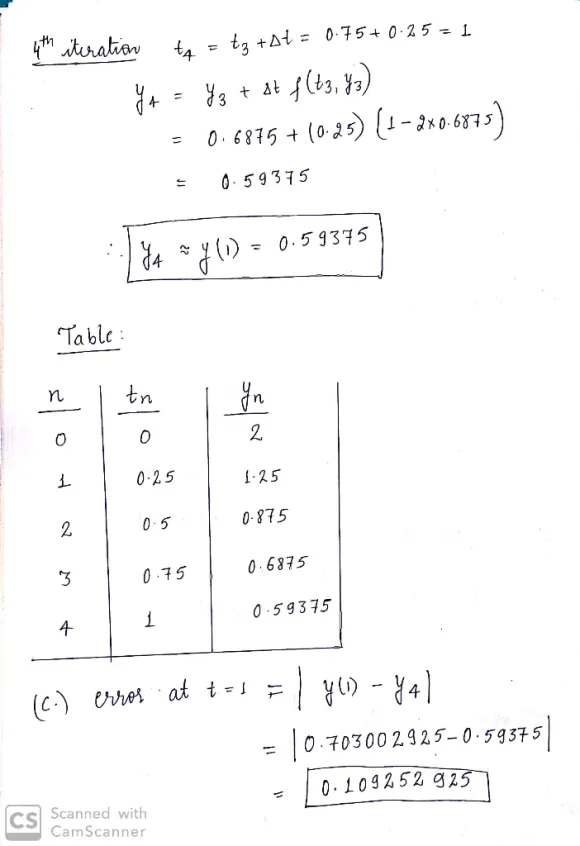 4th iteration t4 = t3 + Δt = 0.75 + 0.25 = 1
y4 = y3 + Δt f(t3, y3)
= 0.6875 + (0.25) (1 - 2x0.6875)
= 0.59375
∴ y4 ≈ y(1) = 0.59375
Table:
n tn yn
0 0 2
1 0.25 1.25
2 0.5 0.875
3 0.75 0.6875
4 1 0.59375
(C.) error at t=1 = | y(1) - y4|
= |0.703002925-0.59375|
= 0.109252925
CS Scanned with
CamScanner